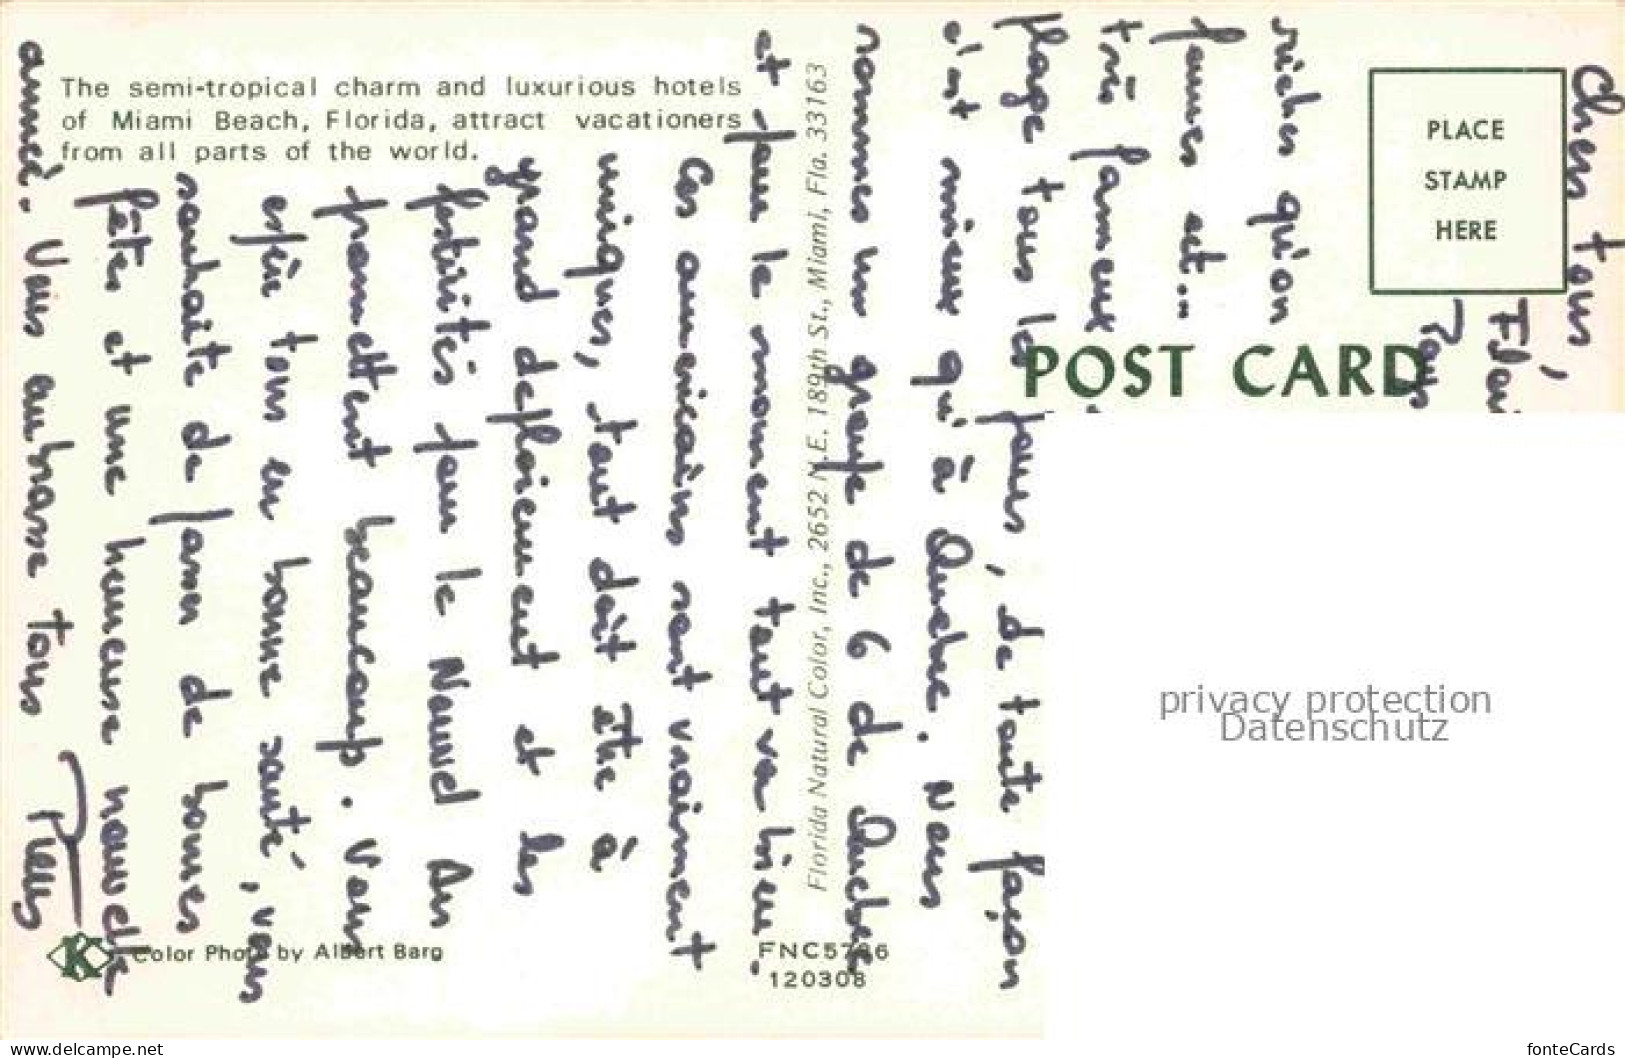 The semi-tropical charm and luxurious hotels
of Miami Beach, Florida, attract vacationers
from all parts of the world.
PLACE
STAMP
HERE
POST CARD
Florida Natural Color, Inc., 2652 N.E. 189th St., Miami, Fla. 33163
Chers tous,
riches qu'on
très fameux
plage tous les jours, de toute façon
c'est mieux qu'à Quebec. Nous
sommes un groupe de 6 de Quebec
et pour le moment tout va bien.
Ces américains sont vraiment
uniques, tout doit être à
grand deploiement et les
festivités pour le Nouvel An
promettent beaucoup. Vous
espère tous en bonne santé, vous
souhaite de passer de bonnes
fêtes et une heureuse nouvelle
année. Vous embrasse tous
K
Color Photo by Albert Barg
FNC5786
120308
privacy protection
Datenschutz
www.delcampe.net
fonteCards